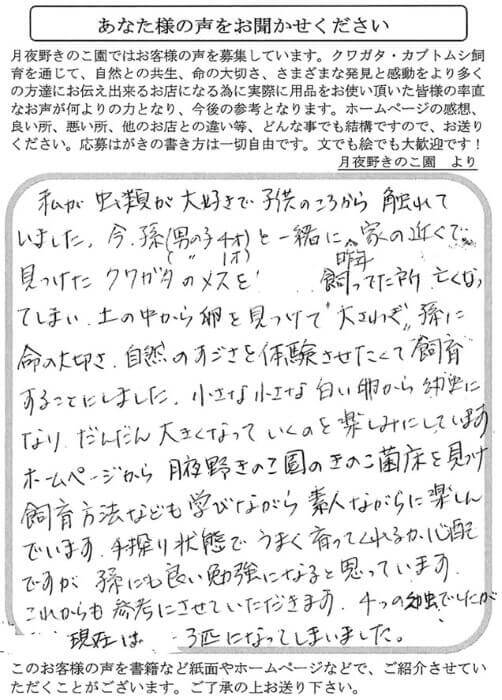 あなた様の声をお聞かせください
月夜野きのこ園ではお客様の声を募集しています。クワガタ・カブトムシ飼
育を通じて、自然との共生、命の大切さ、さまざまな発見と感動をより多く
の方達にお伝え出来るお店になる為に実際に用品をお使い頂いた皆様の率直
なお声が何よりの力となり、今後の参考となります。ホームページの感想、
良い所、悪い所、他のお店との違い等、どんな事でも結構ですので、お送り
ください。応募はがきの書き方は一切自由です。文でも絵でも大歓迎です！
月夜野きのこ園 より
私が虫類が大好きで子供のころから触れて
いました。今、孫(男の子4才)と一緒に、家の近くで
(〃 1才) 昨年
見つけたクワガタのメスを 飼ってた所、亡くなっ
てしまい、土の中から卵を見つけて"大さわぎ"孫に
命の大切さ、自然のすごさを体験させたくて飼育
することにしました。小さな小さな白い卵から幼虫に
なり、だんだん大きくなっていくのを楽しみにしています
ホームページから月夜野きのこ園のきのこ菌床を見つけ
飼育方法なども学びながら素人ながらに楽しん
でいます。手探り状態でうまく育ってくれるか、心配
ですが孫にも良い勉強になると思っています。
これからも参考にさせていただきます。4つの幼虫でしたが
現在は 3匹になってしまいました。
このお客様の声を書籍など紙面やホームページなどで、ご紹介させてい
ただくことがございます。ご了承の上お送り下さい。